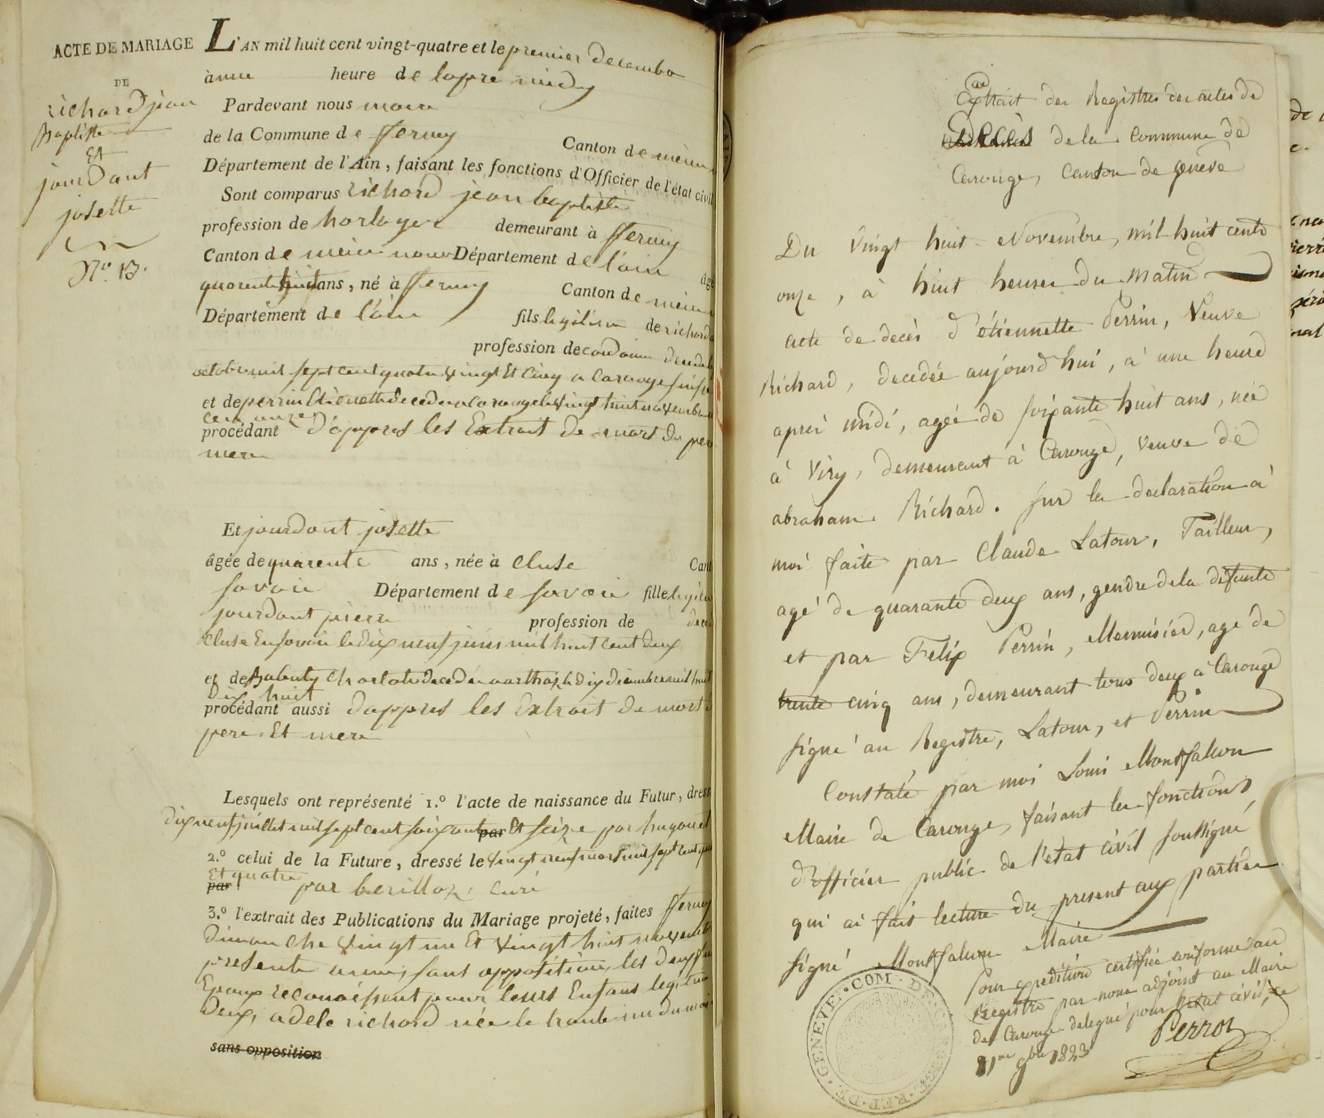 ACTE DE MARIAGE
DE
richard jean
Baptiste
ET
jourdant
josette
N.° 13.
L'AN mil huit cent vingt-quatre et le premier décembre
à une heure de lapre midy
Pardevant nous maire
de la Commune de ferney Canton de
Département de l'Ain, faisant les fonctions d'Officier de l'état civil
Sont comparus richard jean baptiste
profession de horloger demeurant à ferney
Canton de Département de l'ain
quarente huit ans, né à ferney Canton de
Département de l'ain fils legitime de richard
profession de
octobre mil sept cent quatre vingt Et cinq a Carouge
et de perrin Etienette decedee a Carouge le vingt huit novembre
cent onze
procédant d'appres les Extrait de mort de pere
mere
Et jourdant josette
âgée de quarente ans, née à Cluse Cant
Savoie Département de Savoie fille legitime
jourdant pierre profession de
Cluse En Savoie le dix neuf juin mil huit cent deux
et de Charlote decedee dix decembre mil huit
dix huit
procédant aussi dappres les Extrait de mort
pere Et mere
Lesquels ont représenté 1.° l'acte de naissance du Futur, dressé
dix neuf juillet mil sept cent soixante par Et seize par
2.° celui de la Future, dressé le vingt neuf mars mil sept cent
Et quatre
par par curé
3.° l'extrait des Publications du Mariage projeté, faites ferney
dimanche vingt un Et vingt huit novembre
presente sans opposition les deux
Epoux reconoissent pour leurs Enfans legitimes
Deux, adele richard née le trente un du
sans opposition
Extrait des Registres des actes de
Décès de la Commune de
Carouge, Canton de genève
Du Vingt huit Novembre, mil huit cents
onze, à huit heures du matin
acte de decès d'étiennette Perrin, Veuve
Richard, decedée aujourd'hui, à une heure
après midi, agée de soixante huit ans, née
à Viry, demeurant à Carouge, veuve de
abraham Richard. Sur la declaration à
moi faite par Claude Latour, Tailleur,
agé de quarante deux ans, gendre de la defunte
et par Felix Perrin, Menuisier, age de
trente cinq ans, demeurant tous deux à Carouge
signé au Registre, Latour, et Perrin
Constaté par moi Louis Montfalcon
Maire de Carouge, faisant les fonctions
d'officier public de l'etat civil soussigné
qui ai fait lecture du present aux parties
signé Montfalcon Maire
Pour expédition certifiée conforme au
Registre par nous adjoint au Maire
de Carouge delegué pour l'Etat civil, ce
9bre 1823
Perrot
GENEVE COM. DE REP. DE